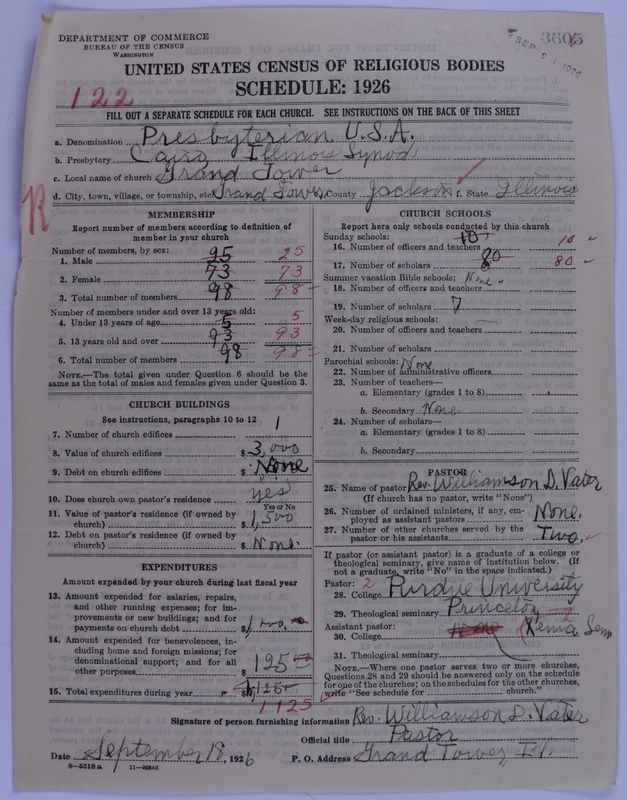 DEPARTMENT OF COMMERCE
BUREAU OF THE CENSUS
WASHINGTON
3605
SEP 21 1926
UNITED STATES CENSUS OF RELIGIOUS BODIES
SCHEDULE: 1926
122
FILL OUT A SEPARATE SCHEDULE FOR EACH CHURCH. SEE INSTRUCTIONS ON THE BACK OF THIS SHEET
a. Denomination Presbyterian U.S.A.
b. Presbytery Cairo Illinois Synod
c. Local name of church Grand Tower
d. City, town, village, or township, etc. Grand Tower County Jackson f. State Illinois
R
MEMBERSHIP
Report number of members according to definition of
member in your church
Number of members, by sex:
1. Male 25 25
2. Female 73 73
3. Total number of members 98 98
Number of members under and over 13 years old:
4. Under 13 years of age 5 5
5. 13 years old and over 93 93
6. Total number of members 98 98
NOTE.—The total given under Question 6 should be the
same as the total of males and females given under Question 3.
CHURCH BUILDINGS
See instructions, paragraphs 10 to 12
7. Number of church edifices 1
8. Value of church edifices $ 3,000
9. Debt on church edifices $ None
10. Does church own pastor's residence yes
Yes or No
11. Value of pastor's residence (if owned by
church) $ 1,500
12. Debt on pastor's residence (if owned by
church) $ None.
EXPENDITURES
Amount expended by your church during last fiscal year
13. Amount expended for salaries, repairs,
and other running expenses; for im-
provements or new buildings; and for
payments on church debt $ 1000
14. Amount expended for benevolences, in-
cluding home and foreign missions; for
denominational support; and for all
other purposes $ 125
15. Total expenditures during year $ 1,125
1125
CHURCH SCHOOLS
Report here only schools conducted by this church
Sunday schools:
16. Number of officers and teachers 10 10
17. Number of scholars 80 80
Summer vacation Bible schools: None
18. Number of officers and teachers
19. Number of scholars
Week-day religious schools:
20. Number of officers and teachers
21. Number of scholars
Parochial schools: None
22. Number of administrative officers
23. Number of teachers—
a. Elementary (grades 1 to 8)
b. Secondary None.
24. Number of scholars—
a. Elementary (grades 1 to 8)
b. Secondary
PASTOR
25. Name of pastor Rev. Williamson D. Vater
(If church has no pastor, write "None")
26. Number of ordained ministers, if any, em-
ployed as assistant pastors None.
27. Number of other churches served by the
pastor or his assistants Two.
If pastor (or assistant pastor) is a graduate of a college or
theological seminary, give name of institution below. (If
not a graduate, write "No" in the space indicated.)
Pastor: 2
28. College Purdue University
29. Theological seminary Princeton
Assistant pastor: Xenia Sem
30. College None
31. Theological seminary
NOTE.—Where one pastor serves two or more churches,
Questions 28 and 29 should be answered only on the schedule
for one of the churches; on the schedules for the other churches,
write "See schedule for church."
Signature of person furnishing information Rev. Williamson D. Vater
Official title Pastor
Date September 18, 1926 P. O. Address Grand Tower, Ill.
8—5518 a 11—9054d